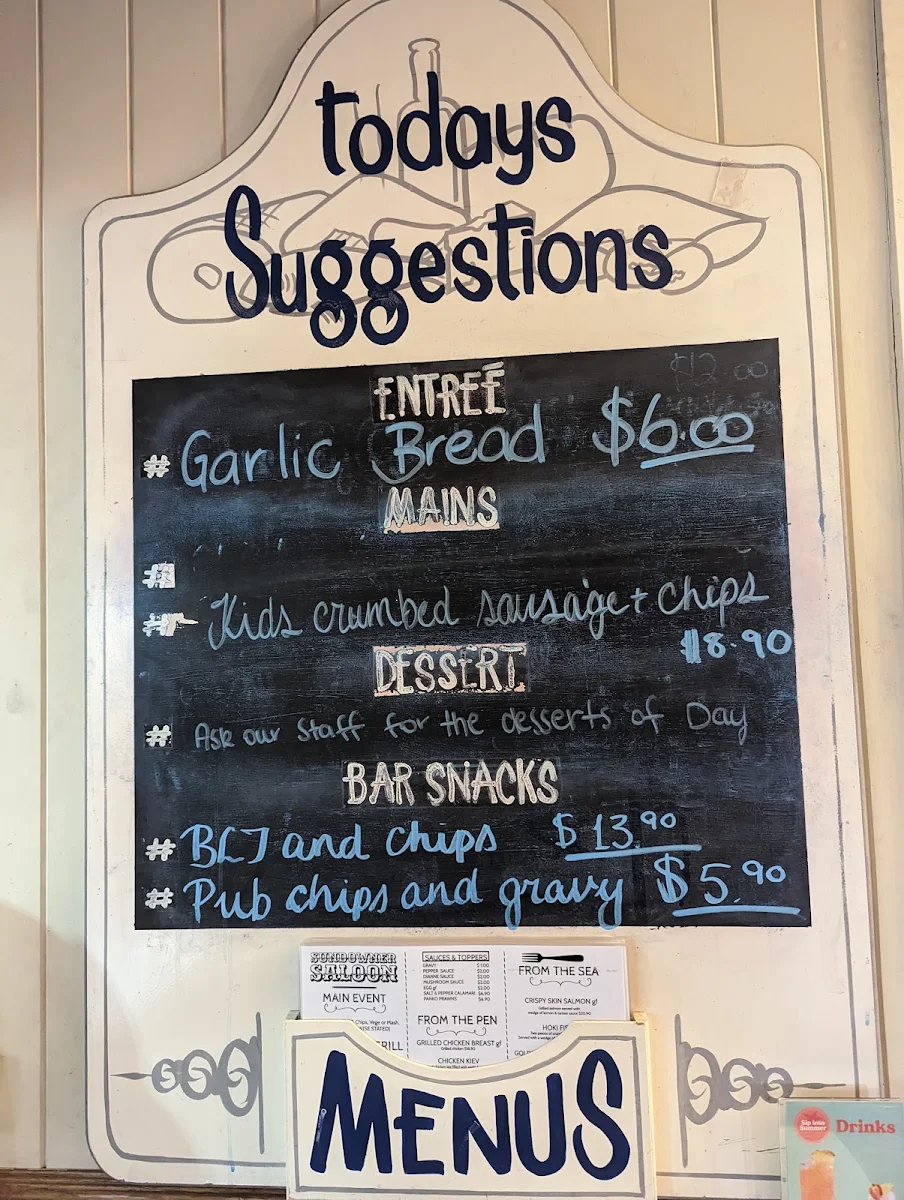 todays
Suggestions
$12 00
ENTREÉ
# Garlic Bread $6.00
MAINS
#
# Kids crumbed sausage + chips
$8.90
DESSERT
# Ask our staff for the desserts of Day
BAR SNACKS
# BLT and chips $13.90
# Pub chips and gravy $5.90
SUNDOWNER
SALOON
MAIN EVENT
Chips, Vege or Mash.
GRILL
SAUCES & TOPPERS
GRAVY $1.00
PEPPER SAUCE $2.00
DIANNE SAUCE $2.00
MUSHROOM SAUCE $2.00
EGG gf $2.00
SALT & PEPPER CALAMARI $6.90
PANKO PRAWNS $6.90
FROM THE PEN
GRILLED CHICKEN BREAST gf
CHICKEN KIEV
FROM THE SEA
CRISPY SKIN SALMON gf
Grilled salmon served with
HOKI FIS
MENUS
Sip into
Summer
Drinks